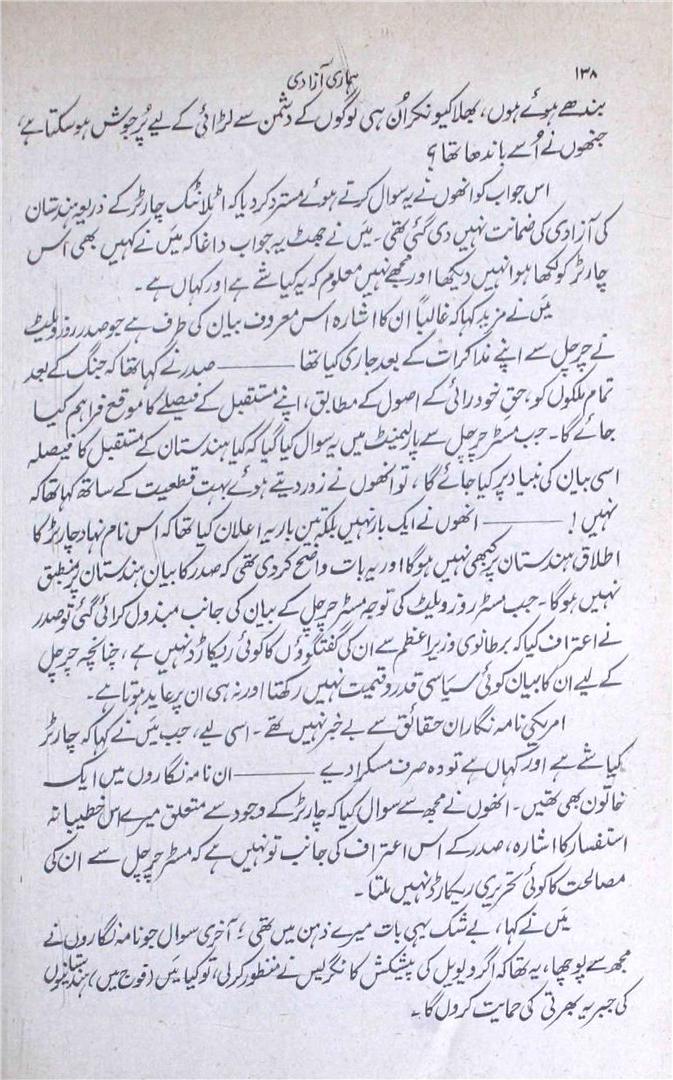 ۱۳۸
ہماری آزادی
بندھے ہوئے ہوں، بھلا کیونکر اُن ہی لوگوں کے دشمن سے لڑائی کے لیے پُرجوش ہو سکتا ہے،
جنھوں نے اُسے باندھا تھا؟
اس جواب کو انھوں نے یہ سوال کرتے ہوئے مسترد کر دیا کہ اٹلانٹک چارٹر کے ذریعہ ہندستان
کی آزادی کی ضمانت نہیں دی گئی تھی۔ میں نے جھٹ یہ جواب داغا کہ میں نے کہیں بھی اس
چارٹر کو لکھا ہوا نہیں دیکھا اور مجھے نہیں معلوم کہ یہ کیا شے ہے اور کہاں ہے۔
میں نے مزید کہا کہ غالباً ان کا اشارہ اس معروف بیان کی طرف ہے جو صدر روزویلیٹ
نے چرچل سے اپنے مذاکرات کے بعد جاری کیا تھا ——— صدر نے کہا تھا کہ جنگ کے بعد
تمام ملکوں کو، حق خود رائی کے اصول کے مطابق، اپنے مستقبل کے فیصلے کا موقع فراہم کیا
جائے گا۔ جب مسٹر چرچل سے پارلیمنٹ میں یہ سوال کیا گیا کہ کیا ہندستان کے مستقبل کا فیصلہ
اسی بیان کی بنیاد پر کیا جائے گا، تو انھوں نے زور دیتے ہوئے بہت قطعیت کے ساتھ کہا تھا کہ
نہیں! ——— انھوں نے ایک بار نہیں بلکہ تین بار یہ اعلان کیا تھا کہ اس نام نہاد چارٹر کا
اطلاق ہندستان پر کبھی نہیں ہوگا اور یہ بات واضح کر دی تھی کہ صدر کا بیان ہندستان پر منطبق
نہیں ہوگا۔ جب مسٹر روزویلیٹ کی توجہ مسٹر چرچل کے بیان کی جانب مبذول کرائی گئی تو صدر
نے اعتراف کیا کہ برطانوی وزیراعظم سے ان کی گفتگوؤں کا کوئی ریکارڈ نہیں ہے، چنانچہ چرچل
کے لیے ان کا بیان کوئی سیاسی قدر و قیمت نہیں رکھتا اور نہ ہی ان پر عاید ہوتا ہے۔
امریکی نامہ نگار ان حقائق سے بے خبر نہیں تھے۔ اسی لیے، جب میں نے کہا کہ چارٹر
کیا شے ہے اور کہاں ہے تو وہ صرف مسکرا دیے ——— ان نامہ نگاروں میں ایک
خاتون بھی تھیں۔ انھوں نے مجھ سے سوال کیا کہ چارٹر کے وجود سے متعلق میرے اس خطیبانہ
استفسار کا اشارہ، صدر کے اس اعتراف کی جانب تو نہیں ہے کہ مسٹر چرچل سے ان کی
مصالحت کا کوئی تحریری ریکارڈ نہیں ملتا۔
میں نے کہا، بے شک یہی بات میرے ذہن میں تھی؛ آخری سوال جو نامہ نگاروں نے
مجھ سے پوچھا، یہ تھا کہ اگر ویویل کی پیشکش کانگریس نے منظور کر لی، تو کیا میں (فوج میں) ہندستانیوں
کی جبریہ بھرتی کی حمایت کروں گا۔